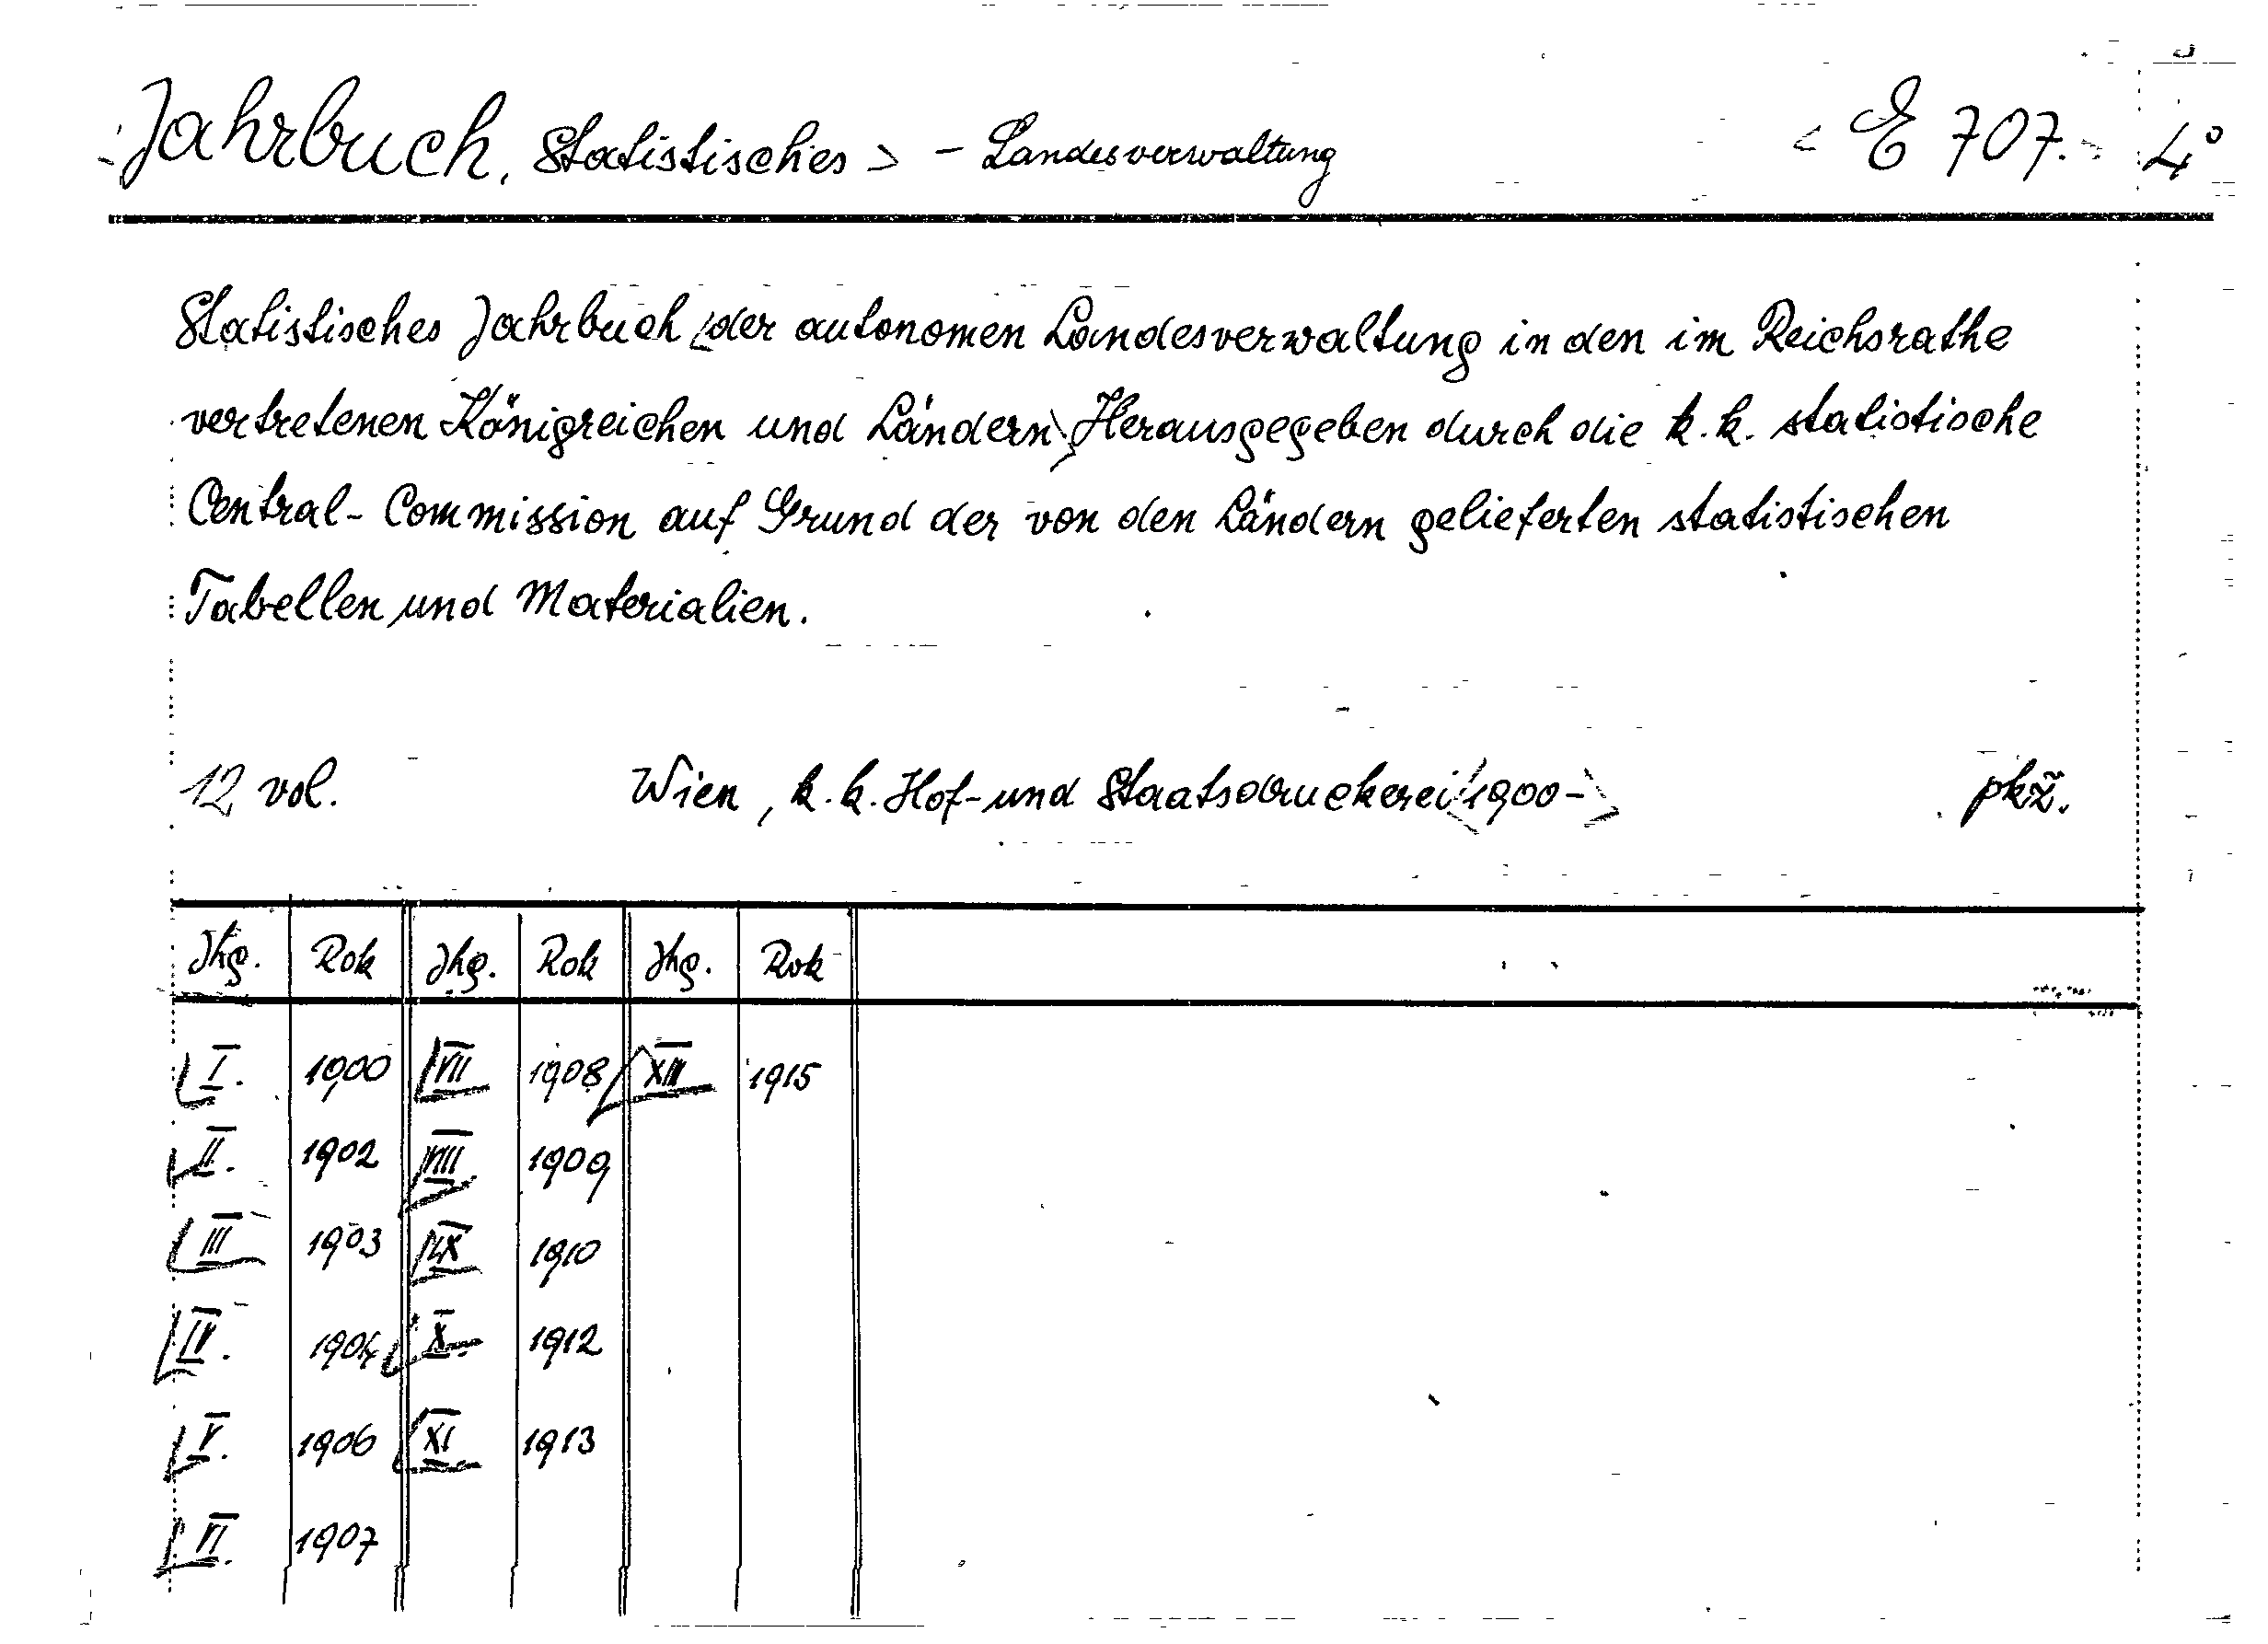 Jahrbuch, Statistisches > - Landesverwaltung < E 707. > 4°
Statistisches Jahrbuch <der autonomen Landesverwaltung in den im Reichsrathe
vertretenen Königreichen und Ländern> Herausgegeben durch die k.k. statistische
Central-Commission auf Grund der von den Ländern gelieferten statistischen
Tabellen und Materialien.
12 vol. Wien, k.k. Hof- und Staatsdruckerei <1900-> pkž.
Jhg. Rok Jhg. Rok Jhg. Rok
I. 1900 VII 1908 XIII 1915
II. 1902 VIII 1909
III 1903 IX 1910
IV. 1904 X. 1912
V. 1906 XI 1913
VI. 1907